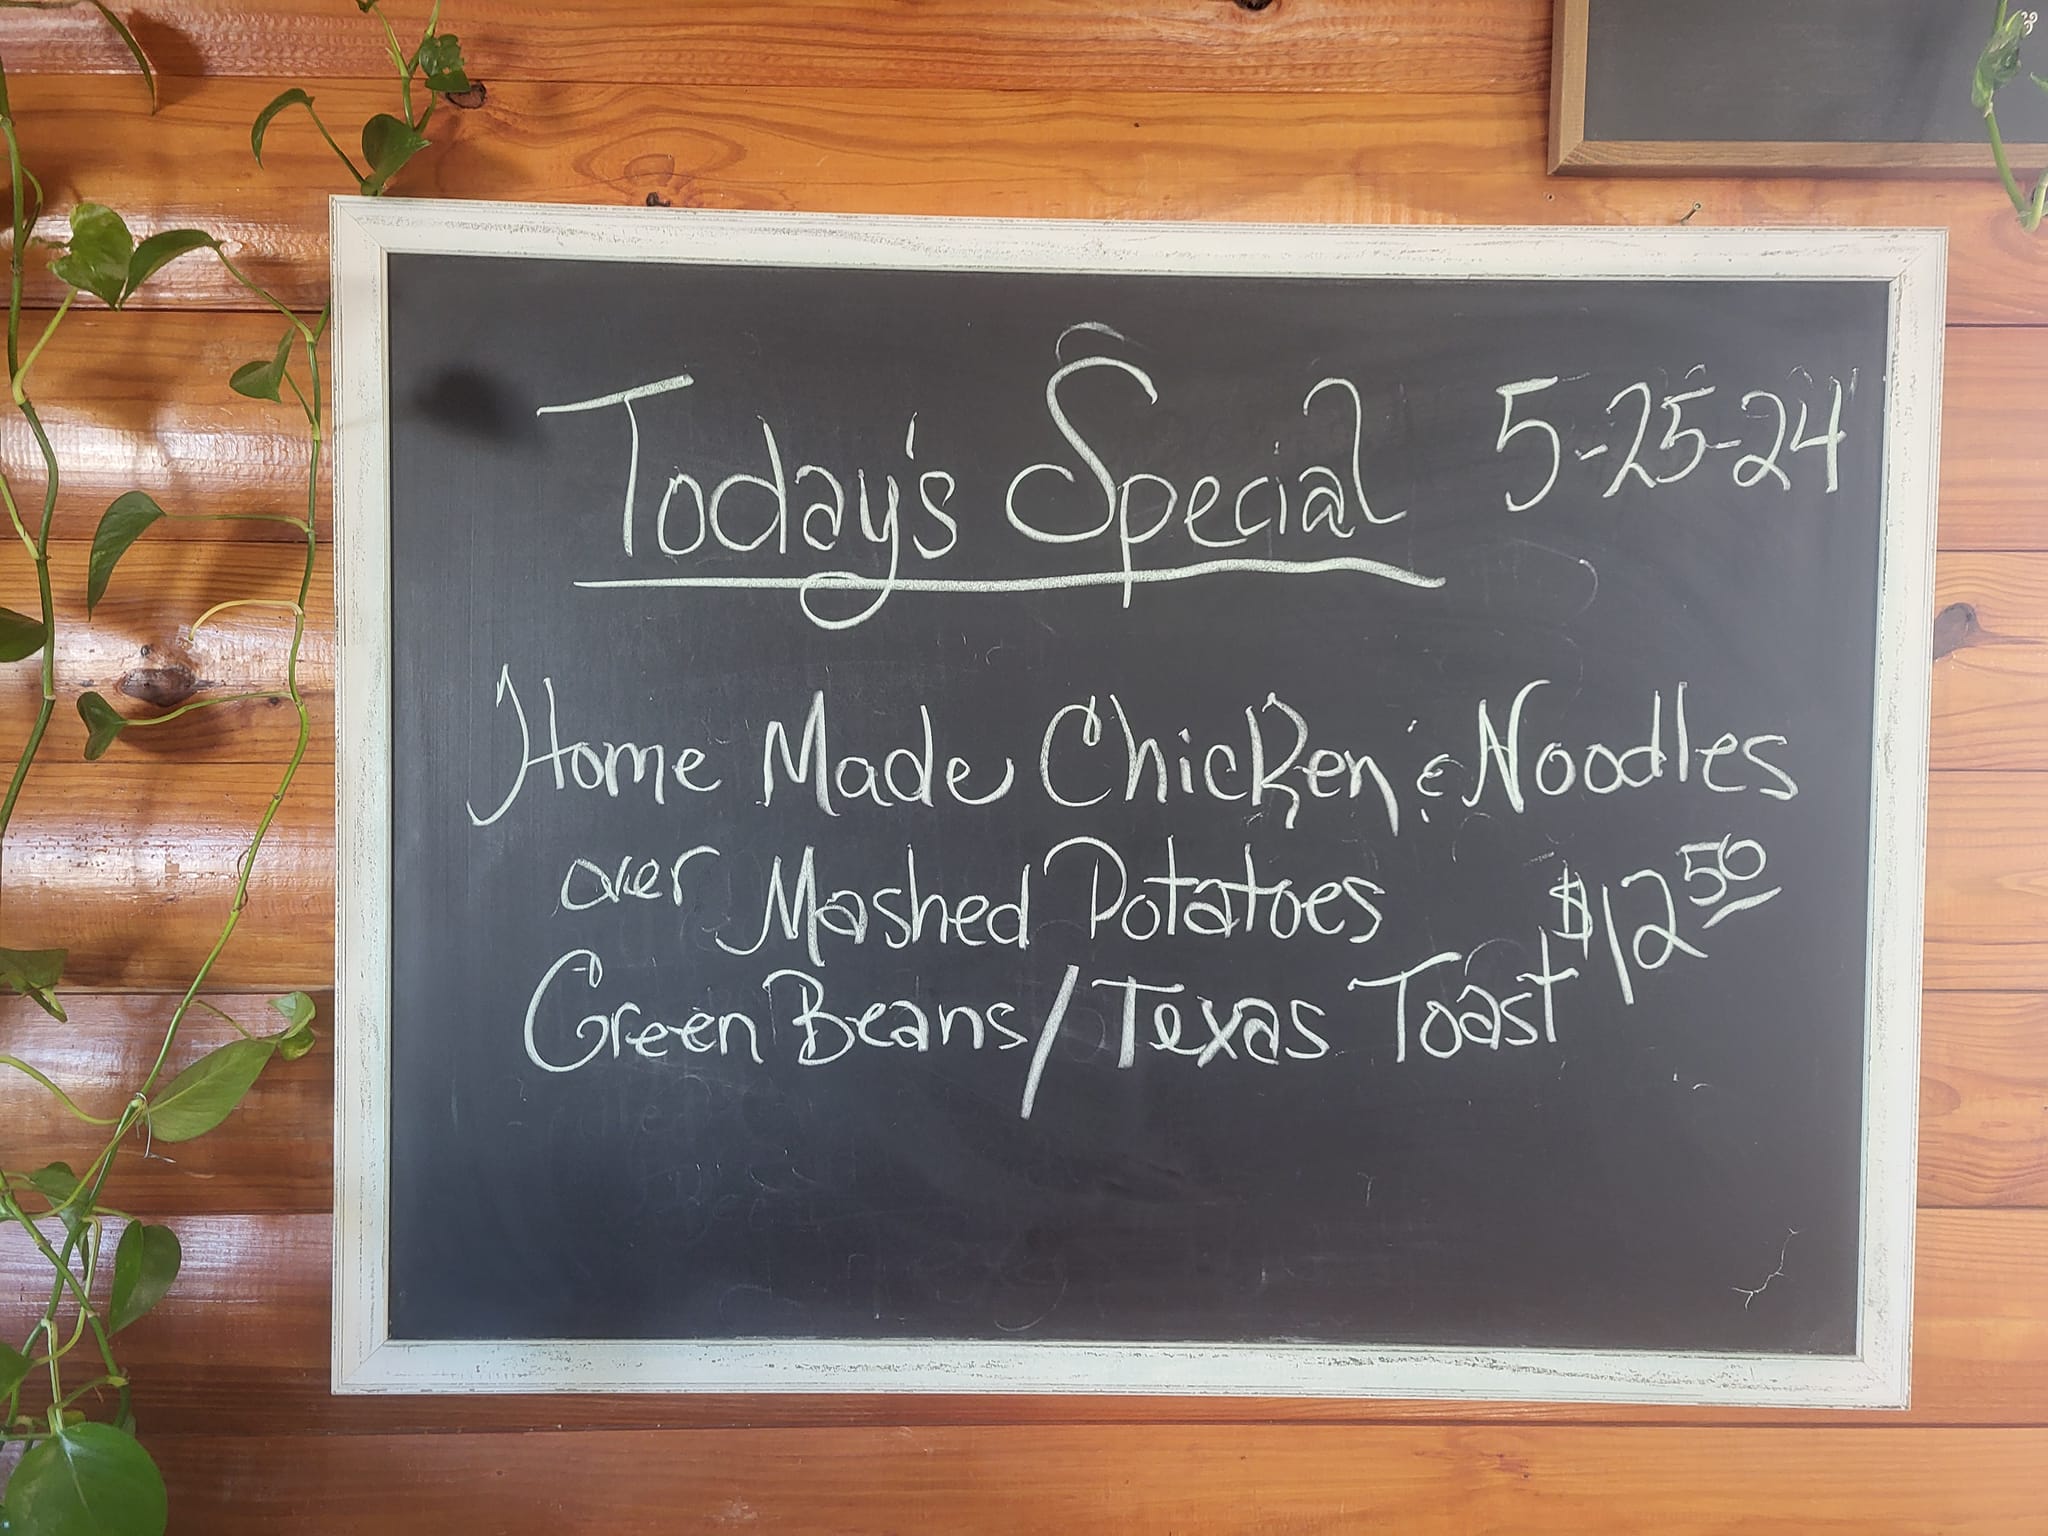 Today's Special 5-25-24
Home Made Chicken & Noodles
over Mashed Potatoes $12 50
Green Beans/Texas Toast